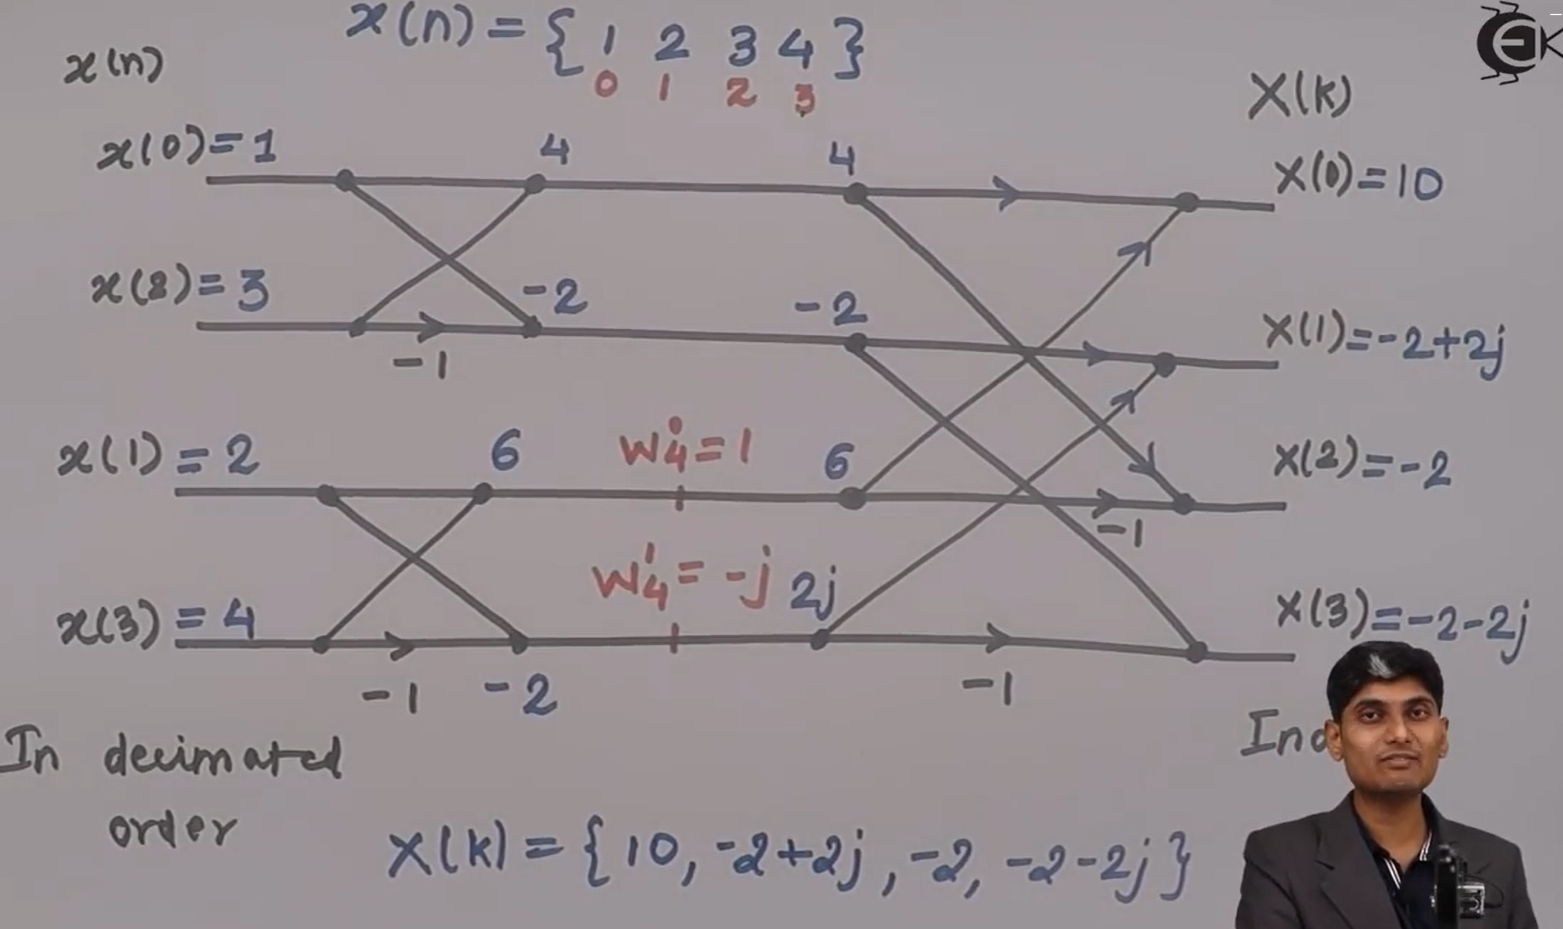 x(n) = { 1 2 3 4 }
0 1 2 3
x(n)
X(k)
x(0) = 1
4
4
X(0) = 10
x(2) = 3
-2
-2
X(1) = -2+2j
-1
x(1) = 2
6
W₄⁰ = 1
6
X(2) = -2
-1
x(3) = 4
W₄¹ = -j
2j
X(3) = -2-2j
-1
-2
-1
In decimated
order
X(k) = { 10, -2+2j, -2, -2-2j }